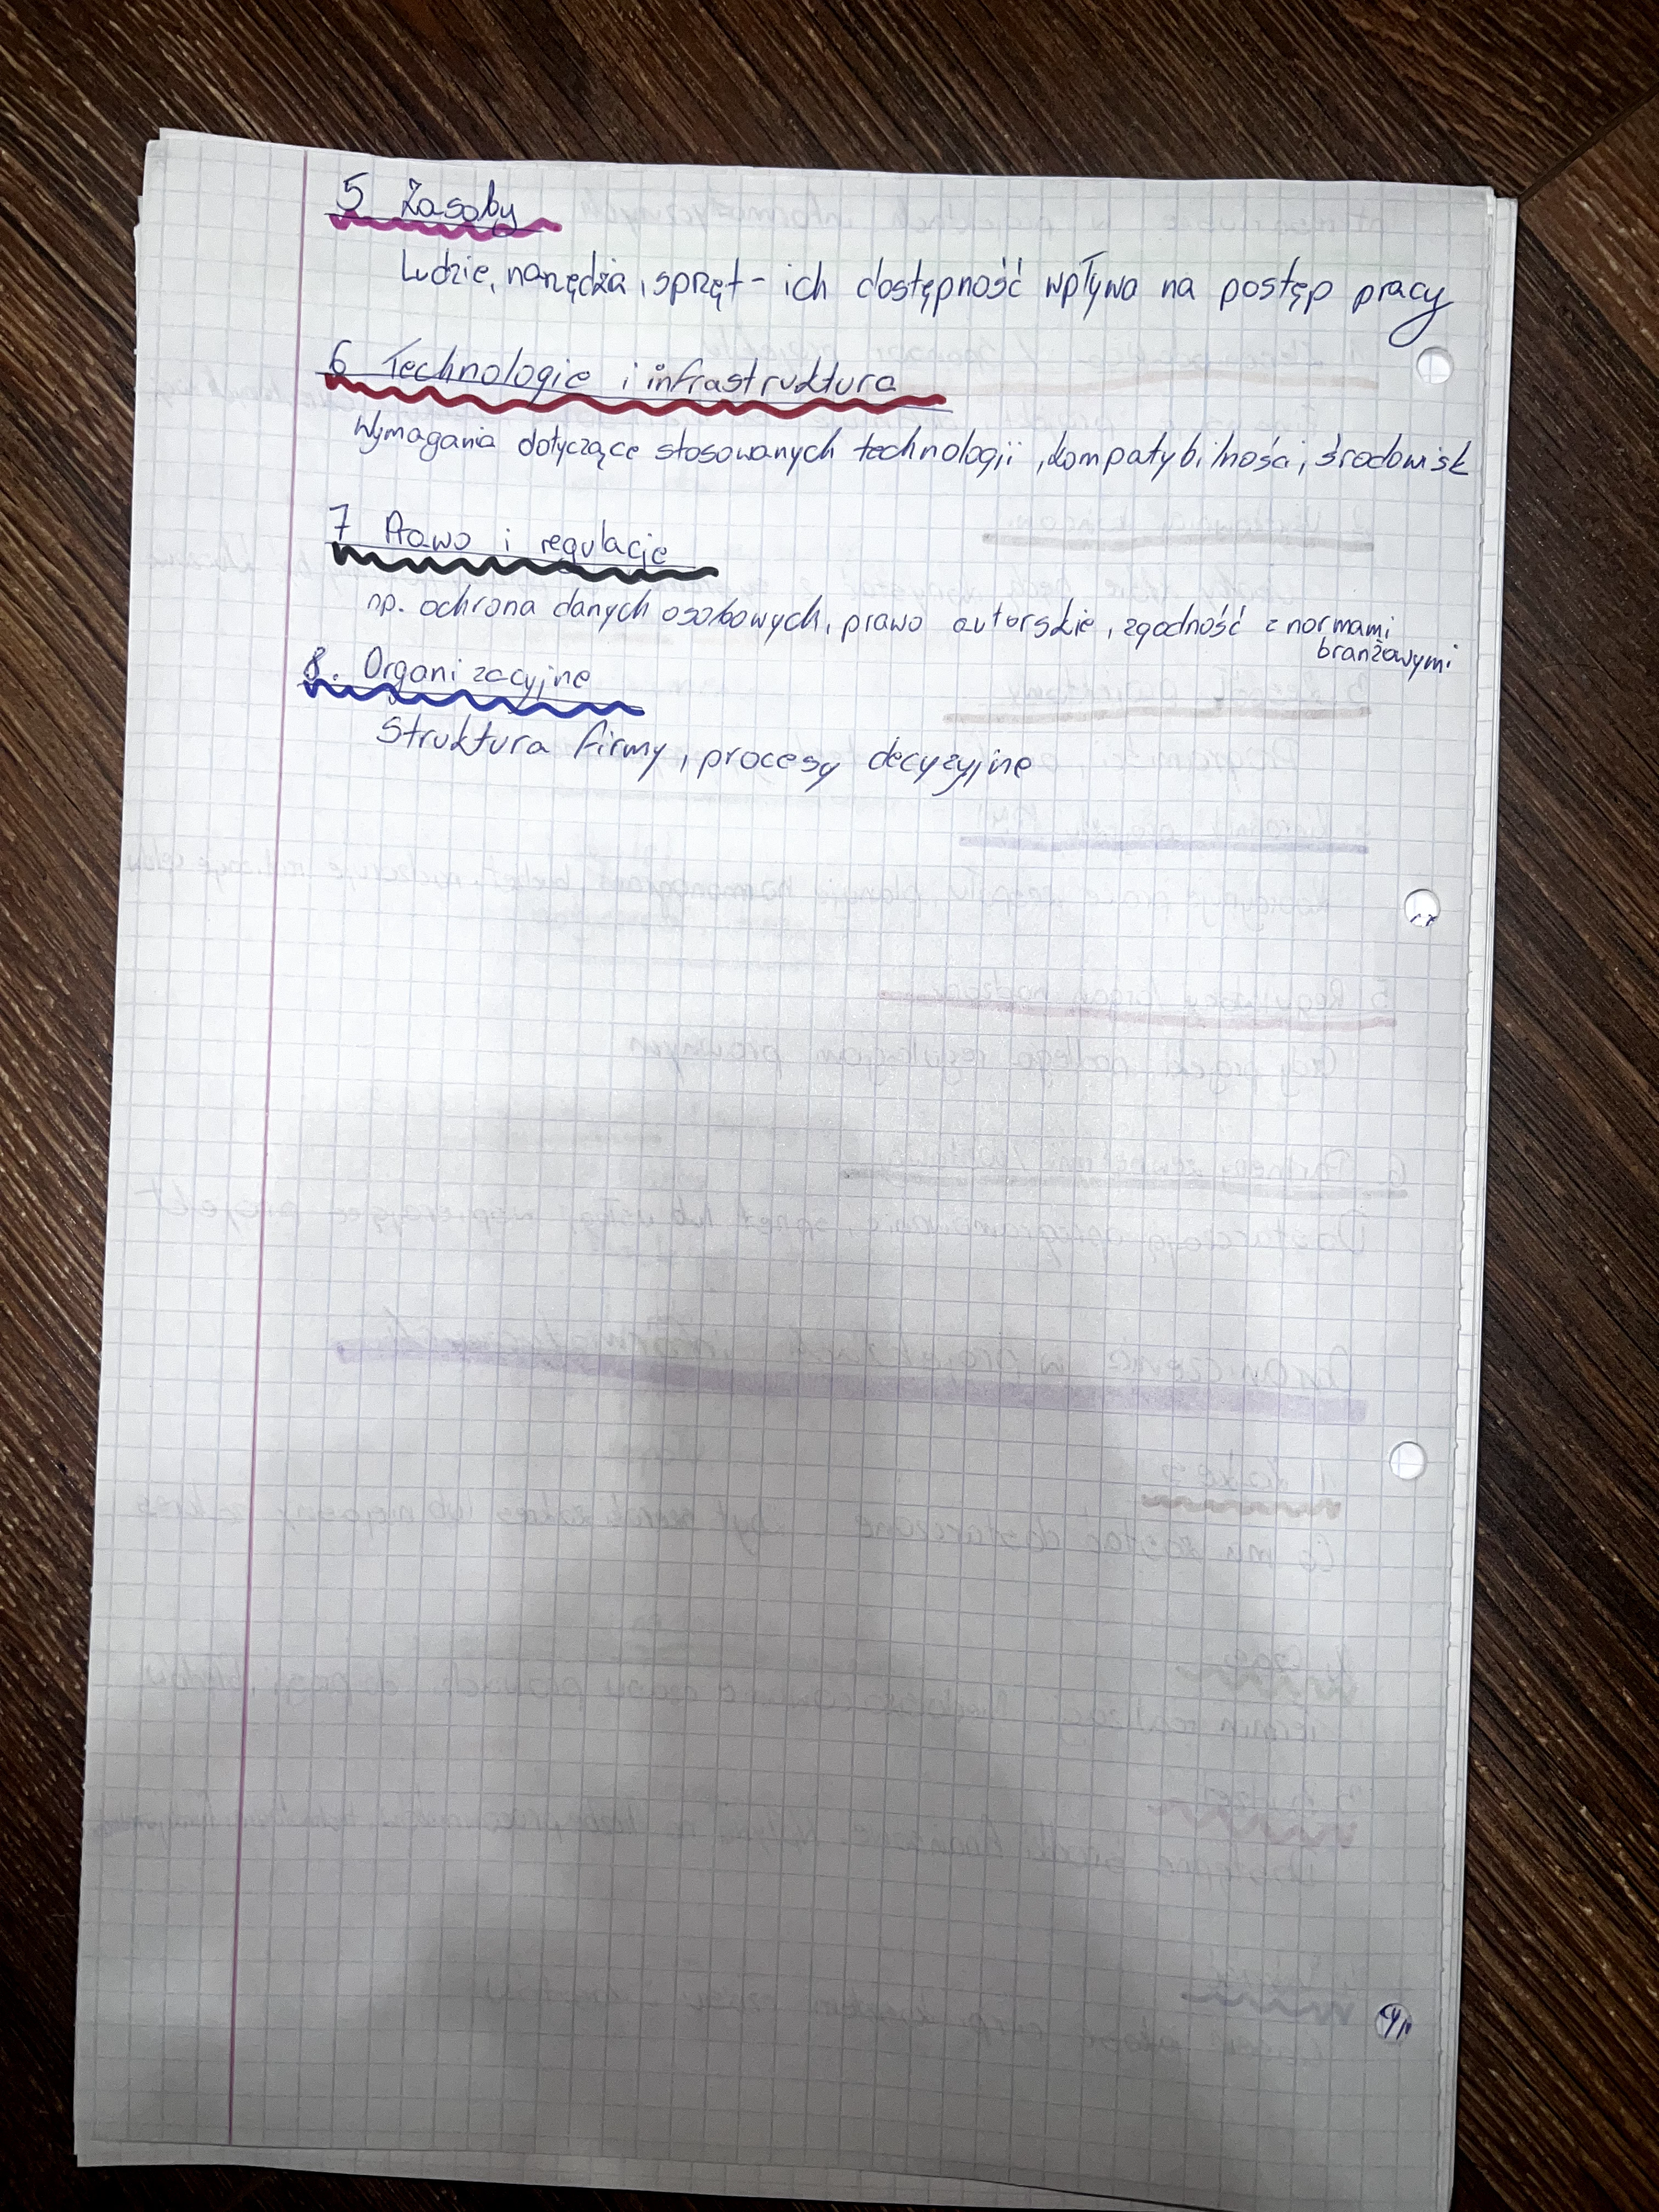 5 Zasoby
Ludzie, narzędzia, sprzęt - ich dostępność wpływa na postęp pracy
6 Technologie i infrastruktura
Wymagania dotyczące stosowanych technologii, kompatybilności, środowisk
7 Prawo i regulacje
np. ochrona danych osobowych, prawo autorskie, zgodność z normami
branżowymi
8. Organizacyjne
Struktura firmy, procesy decyzyjne